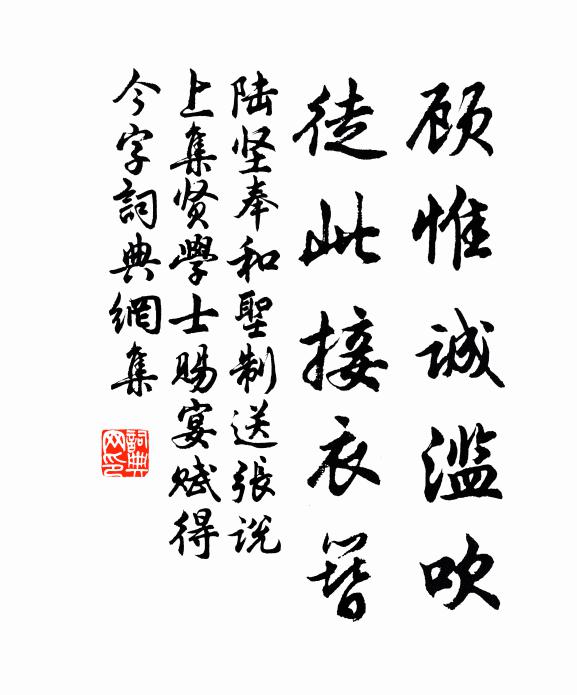 顾惟诚滥吹
徒此接衣簪
陆坚奉和聖制送張说
上集贤學士赐宴赋得
今字詞典網集
詞典
网印